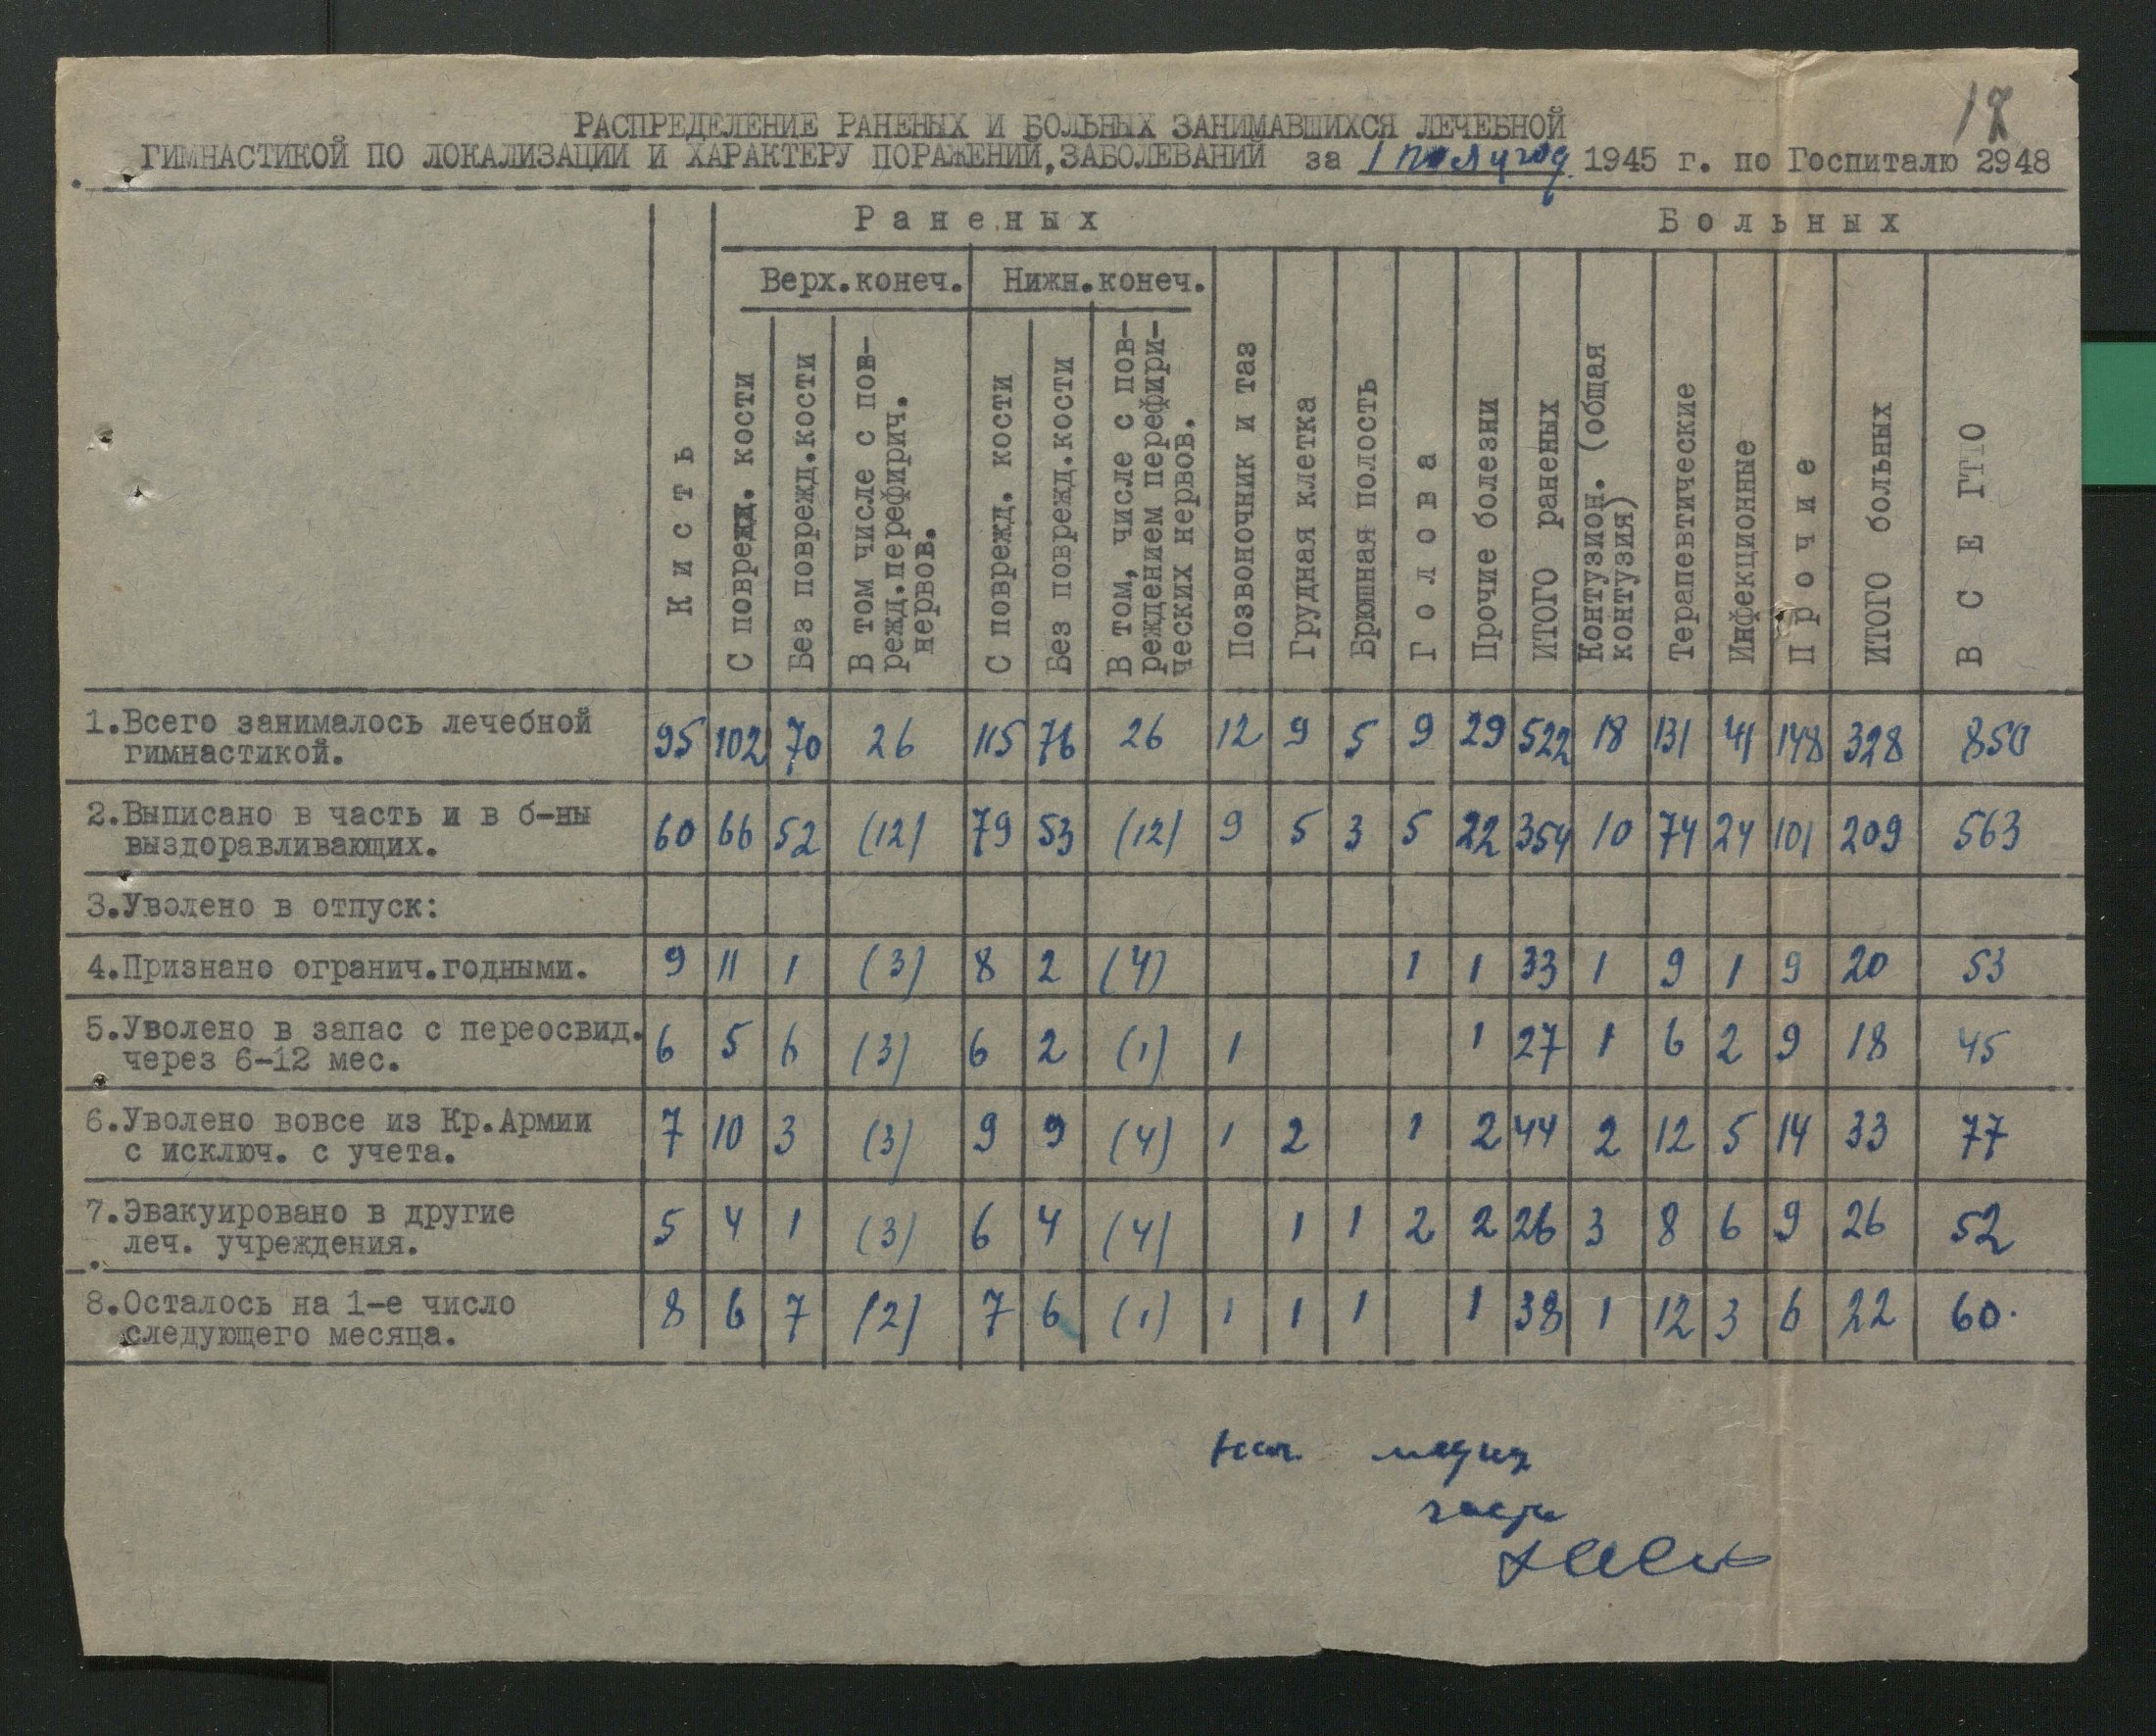 17
РАСПРЕДЕЛЕНИЕ РАНЕНЫХ И БОЛЬНЫХ ЗАНИМАВШИХСЯ ЛЕЧЕБНОЙ
ГИМНАСТИКОЙ ПО ЛОКАЛИЗАЦИИ И ХАРАКТЕРУ ПОРАЖЕНИЙ, ЗАБОЛЕВАНИЙ за 1 полугод. 1945 г. по Госпиталю 2948
Раненых Больных
Верх.конеч. Нижн.конеч.
Кисть
С поврежд. кости
Без поврежд.кости
В том числе с пов-
режд.перефирич.
нервов.
С поврежд. кости
Без поврежд.кости
В том, числе с пов-
реждением перефири-
ческих нервов.
Позвоночник и таз
Грудная клетка
Брюшная полость
Голова
Прочие болезни
ИТОГО раненых
Контузион. (общая
контузия)
Терапевтические
Инфекционные
Прочие
ИТОГО больных
ВСЕГО
1.Всего занималось лечебной
гимнастикой.
95 102 70 26 115 76 26 12 9 5 9 29 522 18 131 41 148 328 850
2.Выписано в часть и в б-ны
выздоравливающих.
60 66 52 (12) 79 53 (12) 9 5 3 5 22 354 10 74 24 101 209 563
3.Уволено в отпуск:
4.Признано огранич.годными.
9 11 1 (3) 8 2 (4) 1 1 33 1 9 1 9 20 53
5.Уволено в запас с переосвид.
через 6-12 мес.
6 5 6 (3) 6 2 (1) 1 1 27 1 6 2 9 18 45
6.Уволено вовсе из Кр.Армии
с исключ. с учета.
7 10 3 (3) 9 9 (4) 1 2 1 2 44 2 12 5 14 33 77
7.Эвакуировано в другие
леч. учреждения.
5 4 1 (3) 6 4 (4) 1 1 2 2 26 3 8 6 9 26 52
8.Осталось на 1-е число
следующего месяца.
8 6 7 (2) 7 6 (1) 1 1 1 1 38 1 12 3 6 22 60.
Нач. медиц
части